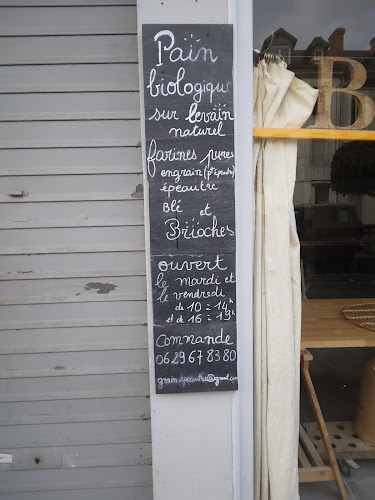 Pain
biologique
sur levain
naturel
farines pures
engrain (pt épeautre)
épeautre
Blé et
Brioches
ouvert
le mardi et
le vendredi
de 10 à 14h
et de 16 à 19h
commande
06 29 67 83 80
grain.depeautre@gmail.com
B